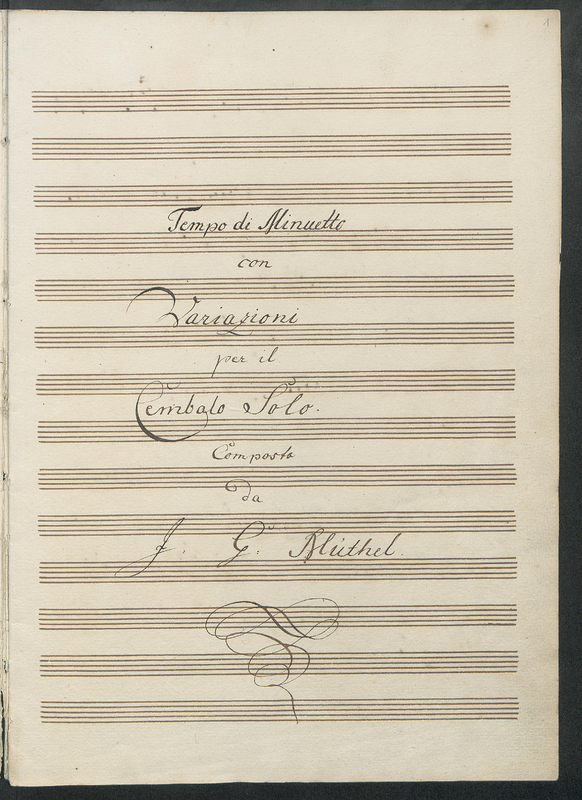 1
Tempo di Minuetto
con
Variazioni
per il
Cembalo Solo.
Composto
da
J. G. Müthel.